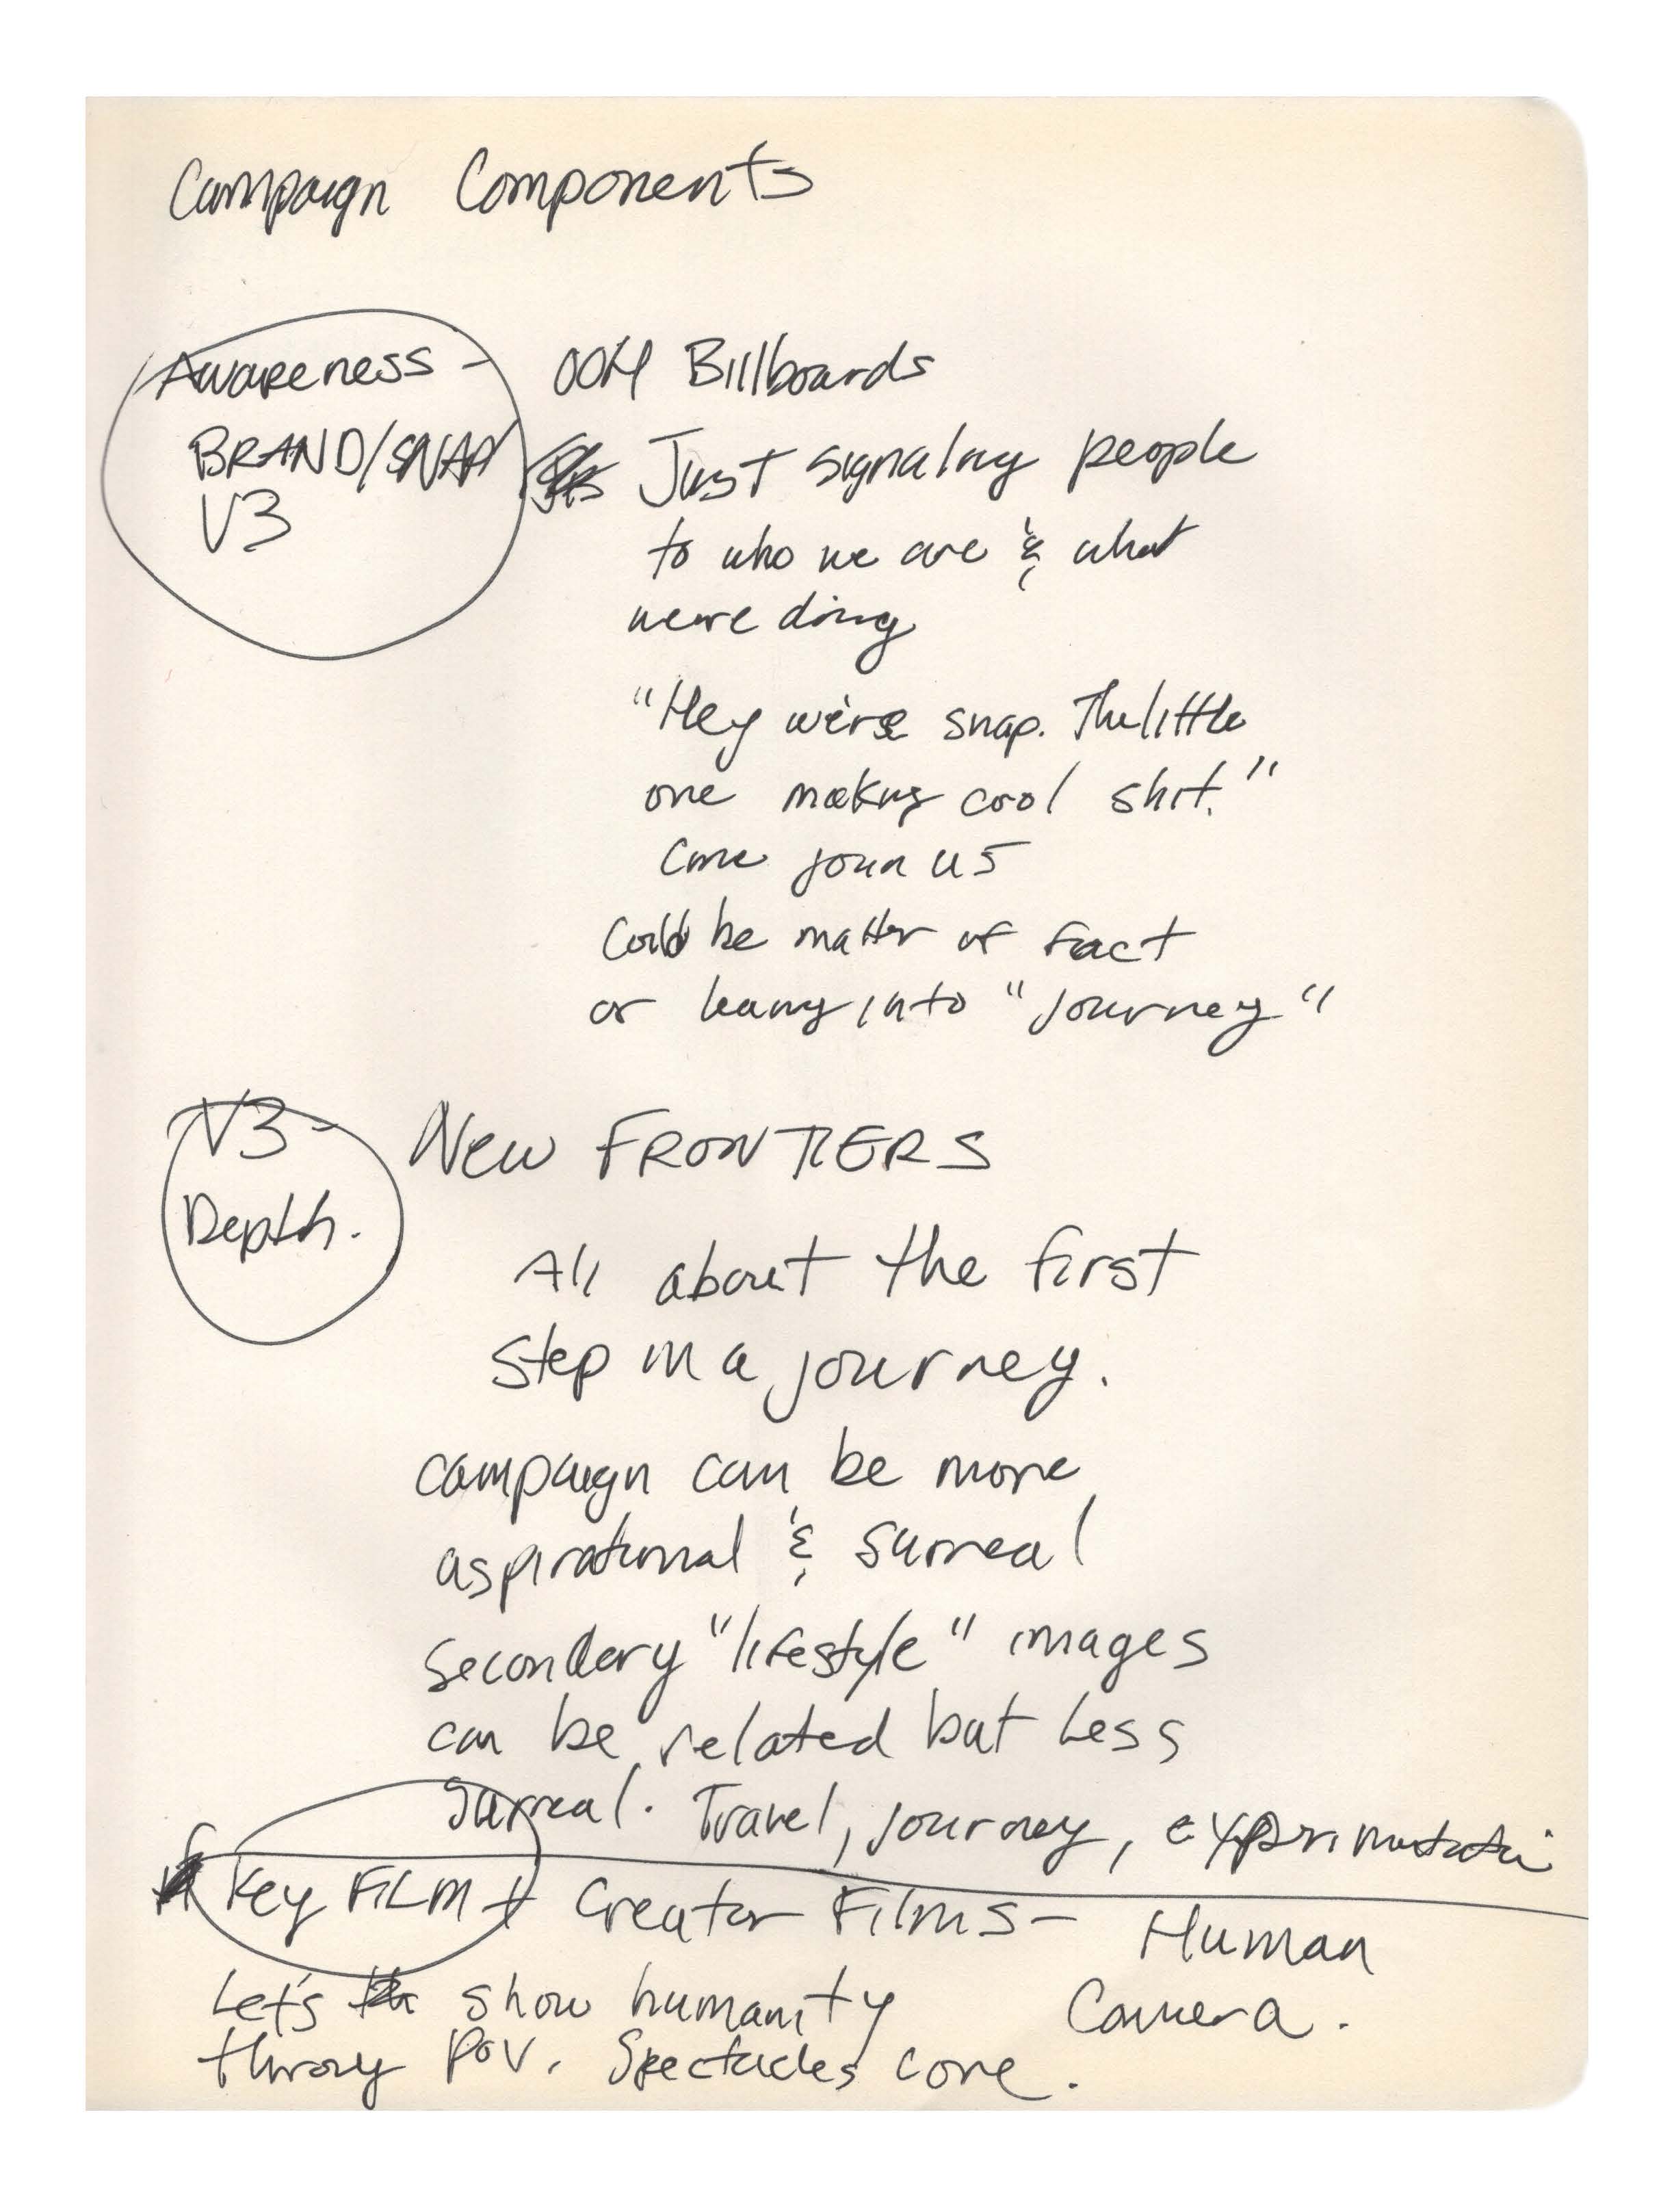 Campaign Components
Awareness - OOH Billboards
BRAND/SNAP Just signaling people
V3
to who we are & what
we're doing
"Hey we're snap. The little
one making cool shit."
Come join us
Could be matter of fact
or leaning into "journey"
V3 - New FRONTIERS
Depth.
All about the first
step in a journey.
campaign can be more
aspirational & surreal
secondary "lifestyle" images
can be related but less
surreal. Travel, journey, experimentation
Key FILM + Creator Films - Human
Camera.
Let's show humanity
through POV. Spectacles core.